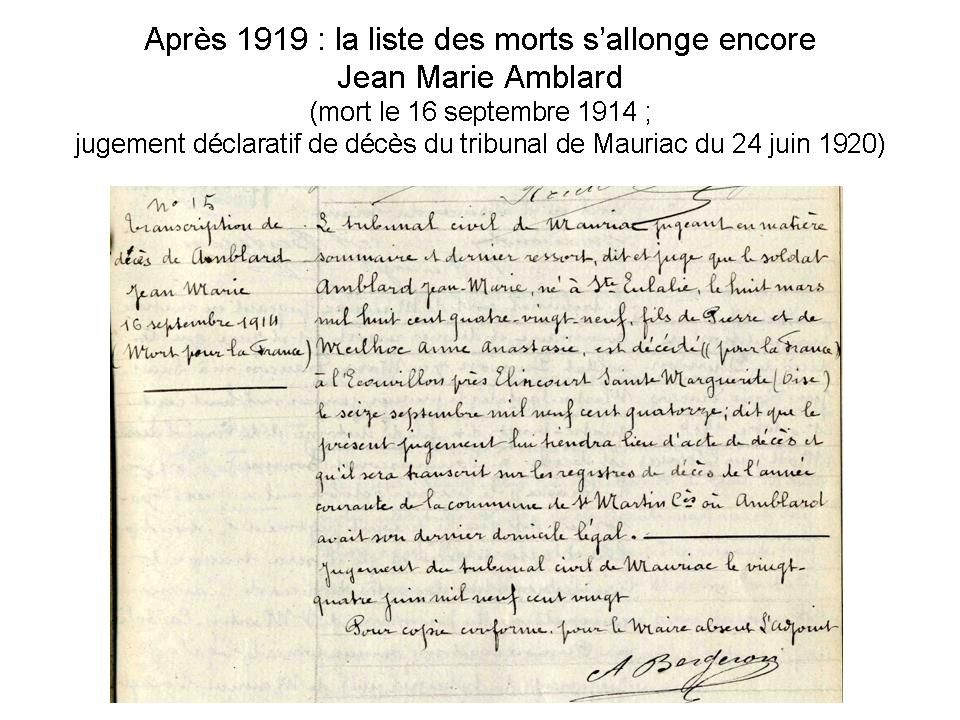 Après 1919 : la liste des morts s'allonge encore
Jean Marie Amblard
(mort le 16 septembre 1914 ;
jugement déclaratif de décès du tribunal de Mauriac du 24 juin 1920)
n° 15
transcription de
décès de Amblard
Jean Marie
16 septembre 1914
(Mort pour la France)
Le tribunal civil de Mauriac jugeant en matière
sommaire et dernier ressort, dit et juge que le soldat
Amblard Jean-Marie, né à Ste Eulalie, le huit mars
mil huit cent quatre-vingt-neuf, fils de Pierre et de
Meilhoc Anne Anastasie, est décédé ((pour la France)
à l'Ecouvillon près Elincourt Sainte Marguerite (Oise)
le seize septembre mil neuf cent quatorze ; dit que le
présent jugement lui tiendra lieu d'acte de décès et
qu'il sera transcrit sur les registres de décès de l'année
courante de la commune de St Martin Cès où Amblard
avait son dernier domicile légal.
Jugement du tribunal civil de Mauriac le vingt-
quatre juin mil neuf cent vingt
Pour copie conforme. pour le Maire absent L'adjoint
A Bergeron